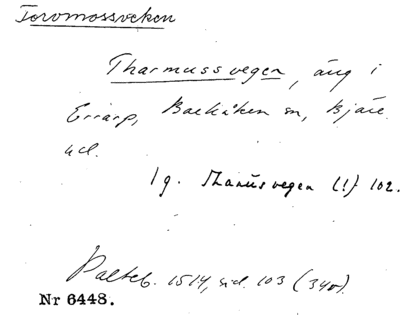 Torvmossveken
Tharmussvegen, äng i
Errarp, Barkåken sn, Bjäre
hd.
Ig. Tharusvegen (!) 102.
Palteb. 1514, sid. 103 (340).
Nr 6448.